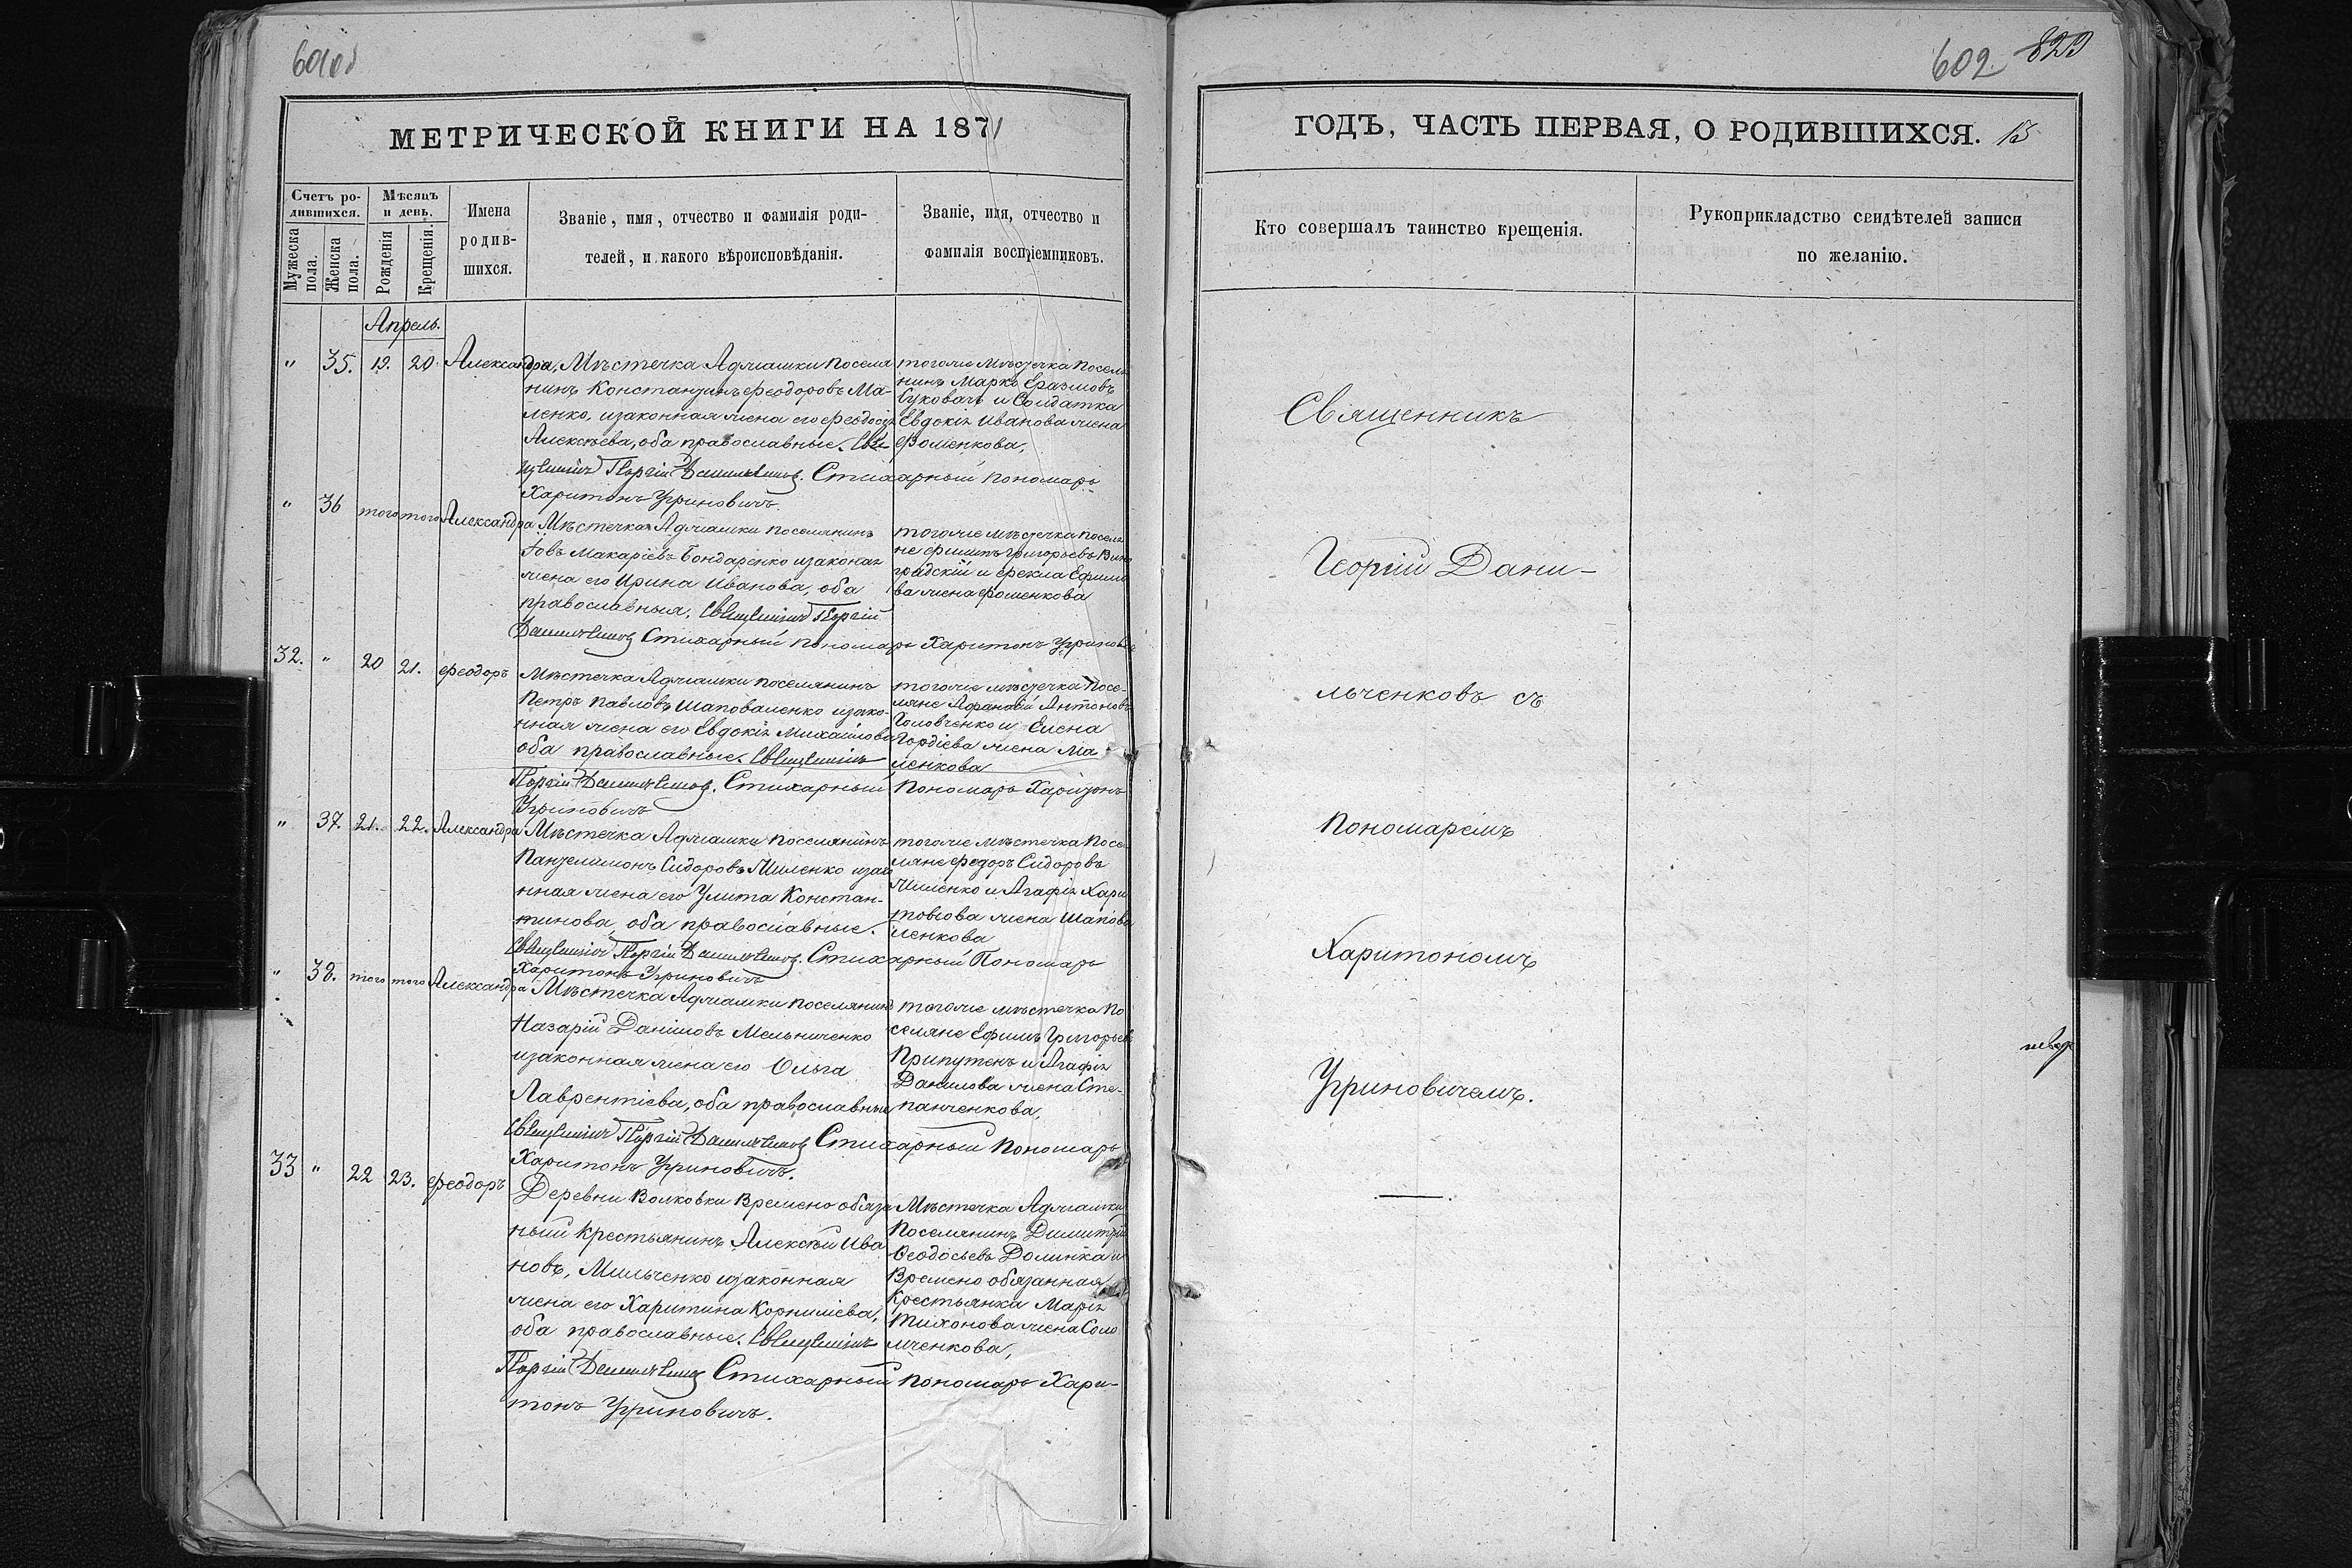 602 829
МЕТРИЧЕСКОЙ КНИГИ НА 1871
ГОДЪ, ЧАСТЬ ПЕРВАЯ, О РОДИВШИХСЯ. 15
Счетъ ро-
дившихся.
Мужеска пола.
Женска пола.
Мѣсяцъ
и день.
Рожденія
Крещенія.
Имена
родив-
шихся.
Званіе, имя, отчество и фамилія роди-
телей, и какого вѣроисповѣданія.
Званіе, имя, отчество и
фамилія воспріемниковъ.
Кто совершалъ таинство крещенія.
Рукоприкладство свидѣтелей записи
по желанію.
Апрель.
" 35. 19. 20. Александра,
Мѣстечка Аджамки поселя
нинъ Константинъ Феодоровъ Ма-
ленко, изаконная жена его Феодосія
Алексѣева, оба православные. Свя-
щенникъ Георгій Данильченковъ. Стихарный пономарь
Харитонъ Угриновичъ.
тогоже мѣстечка поселя
нинъ Марко Еразмовъ
Суковачъ и Солдатка
Евдокія Иванова жена
Фоменкова,
" 36 того того Александра
Мѣстечка Аджамки поселянинъ
Іовъ Макаріевъ Бондаренко изаконая
жена его Ирина Иванова, оба
православныя. Священникъ Георгій
Данильченковъ Стихарный пономарь Харитонъ Угриновичъ
тогоже мѣстечка поселя
не Филипъ Григорьевъ Вино
градскій и Фекла Ефимо
ва жена Фоменкова
32. " 20 21. Феодоръ
Мѣстечка Аджамки поселянинъ
Петръ Павловъ Шаповаленко изако-
нная жена его Евдокія Михаилова
оба православные. Священникъ
Георгій Данильченковъ. Стихарный Пономарь Харитонъ
Угриновичъ
тогоже мѣстечка Посе-
ляне Афанасій Антоновъ
Головченко и Елена
Гордіева жена Ма
ленкова
" 37. 21. 22. Александра
Мѣстечка Аджамки поселянинъ
Пантелимонъ Сидоровъ Миленко изако
нная жена его Улита Констан-
тинова, оба православные.
Священникъ Георгій Данильченковъ. Стихарный Пономарь
Харитонъ Угриновичъ
тогоже мѣстечка Посе
ляне Федоръ Сидоровъ
Миленко и Агафія Хари
това жена Шапова
ленкова
" 38. того того Александра
Мѣстечка Аджамки поселянинъ
Назарій Даніиловъ Мельниченко
изаконная жена его Ольга
Лаврентіева, оба православные
Священникъ Георгій Данильченковъ Стихарный Пономарь
Харитонъ Угриновичъ.
тогоже мѣстечка По
селяне Ефимъ Григорьевъ
Припутенъ и Агафія
Данилова жена Сте-
панченкова,
33 " 22 23. Феодоръ
Деревни Волковки Времено обяза
ный крестьянинъ Алексѣй Ива
новъ, Мильченко изаконная
жена его Харитина Корнилиева,
оба православные. Священникъ
Георгій Данильченковъ Стихарный Пономарь Хари-
тонъ Угриновичъ.
Мѣстечка Аджамки
Поселянинъ Димитрій
Феодосьевъ Долинка и
Времено обязанная
Крестьянка Марія
Тихонова жена Соло
мченкова,
Священникъ
Георгій Дани-
льченковъ съ
Пономаремъ
Харитономъ
Угриновичемъ.